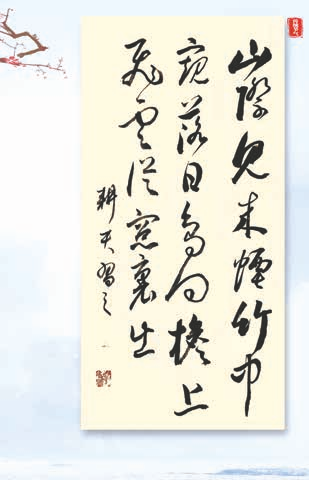 山際見來煙竹中
窺落日鳥向檐上
飛雲從窗裏出
耕習之